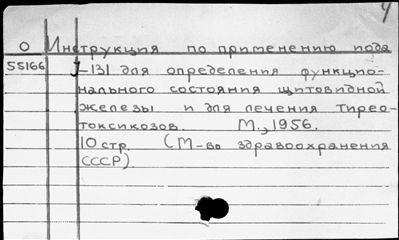 Ч
О Инструкция по применению иода
55166 J-131 для определения функцио-
нального состояния щитовидной
железы и для лечения тирео-
токсикозов. М., 1956.
10 стр. (М-во здравоохранения
СССР).